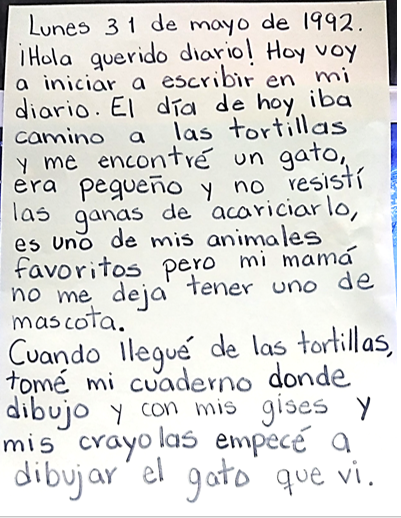 Lunes 31 de mayo de 1992.
¡Hola querido diario! Hoy voy
a iniciar a escribir en mi
diario. El día de hoy iba
camino a las tortillas
y me encontré un gato,
era pequeño y no resistí
las ganas de acariciarlo,
es uno de mis animales
favoritos pero mi mamá
no me deja tener uno de
mascota.
Cuando llegué de las tortillas,
tomé mi cuaderno donde
dibujo y con mis gises y
mis crayolas empecé a
dibujar el gato que vi.